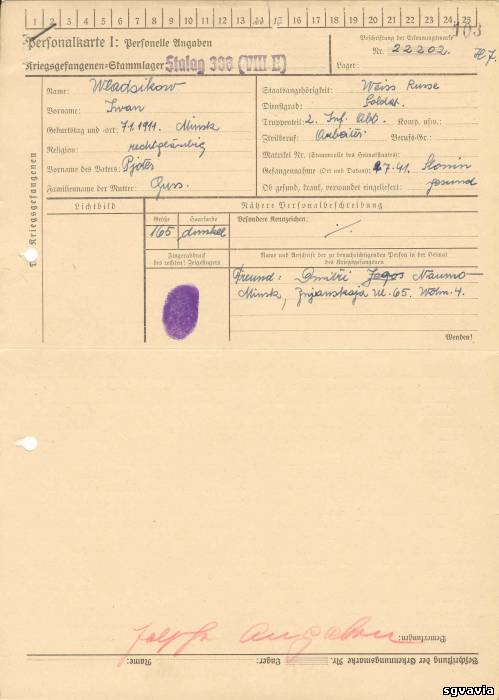 1 2 3 4 5 6 7 8 9 10 11 12 13 14 15 16 17 18 19 20 21 22 23 24 25
103
Personalkarte I: Personelle Angaben
Kriegsgefangenen-Stammlager Stalag
(VIII E)
Beschriftung der Erkennungsmarke
Nr. 22202.
Lager:
Name: Wladsikow
Vorname: Iwan
Geburtstag und -ort: 7.1.1911. Minsk
Religion: rechtgläubig
Vorname des Vaters: Pjotr
Familienname der Mutter:
Staatsangehörigkeit: Weiss Russe
Dienstgrad: Soldat.
Truppenteil: 2. Inf. Abt. Komp. usw.:
Zivilberuf: Arbeiter Berufs-Gr.:
Matrikel Nr. (Stammrolle des Heimatstaates):
Gefangennahme (Ort und Datum): 7.41. Slonin
Ob gesund, krank, verwundet eingeliefert: gesund
Des Kriegsgefangenen
Lichtbild
Nähere Personalbeschreibung
Größe
Haarfarbe
Besondere Kennzeichen:
165
dunkel
Fingerabdruck
des rechten! Zeigefingers
Name und Anschrift der zu benachrichtigenden Person in der Heimat
des Kriegsgefangenen
Freund: Dmitri Naumo-
Minsk, ul. 65. Wohn. 4.
Wenden!
Angaben
Bemerkungen:
Beschriftung der Erkennungsmarke Nr. Lager: Name:
sgvavia